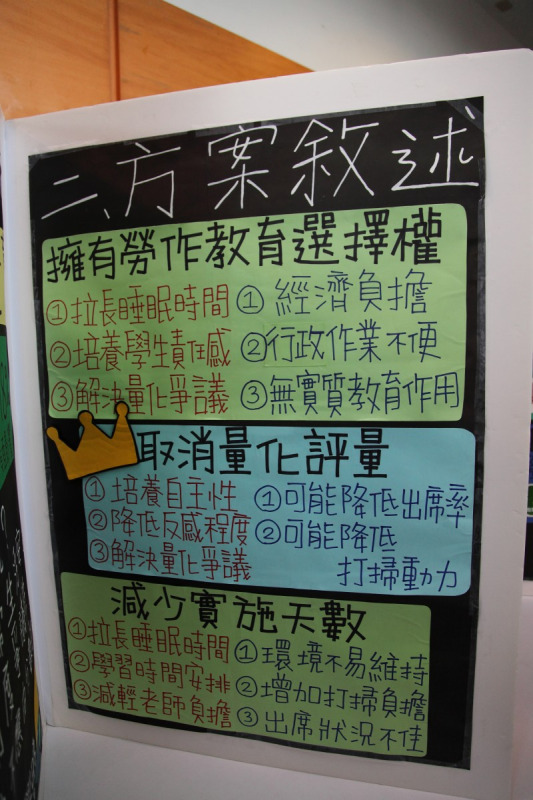 二、方案敘述
擁有勞作教育選擇權
①拉長睡眠時間
②培養學生責任感
③解決量化爭議
①經濟負擔
②行政作業不便
③無實質教育作用
取消量化評量
①培養自主性
②降低反感程度
③解決量化爭議
①可能降低出席率
②可能降低
打掃動力
減少實施天數
①拉長睡眠時間
②學習時間安排
③減輕老師負擔
①環境不易維持
②增加打掃負擔
③出席狀況不佳